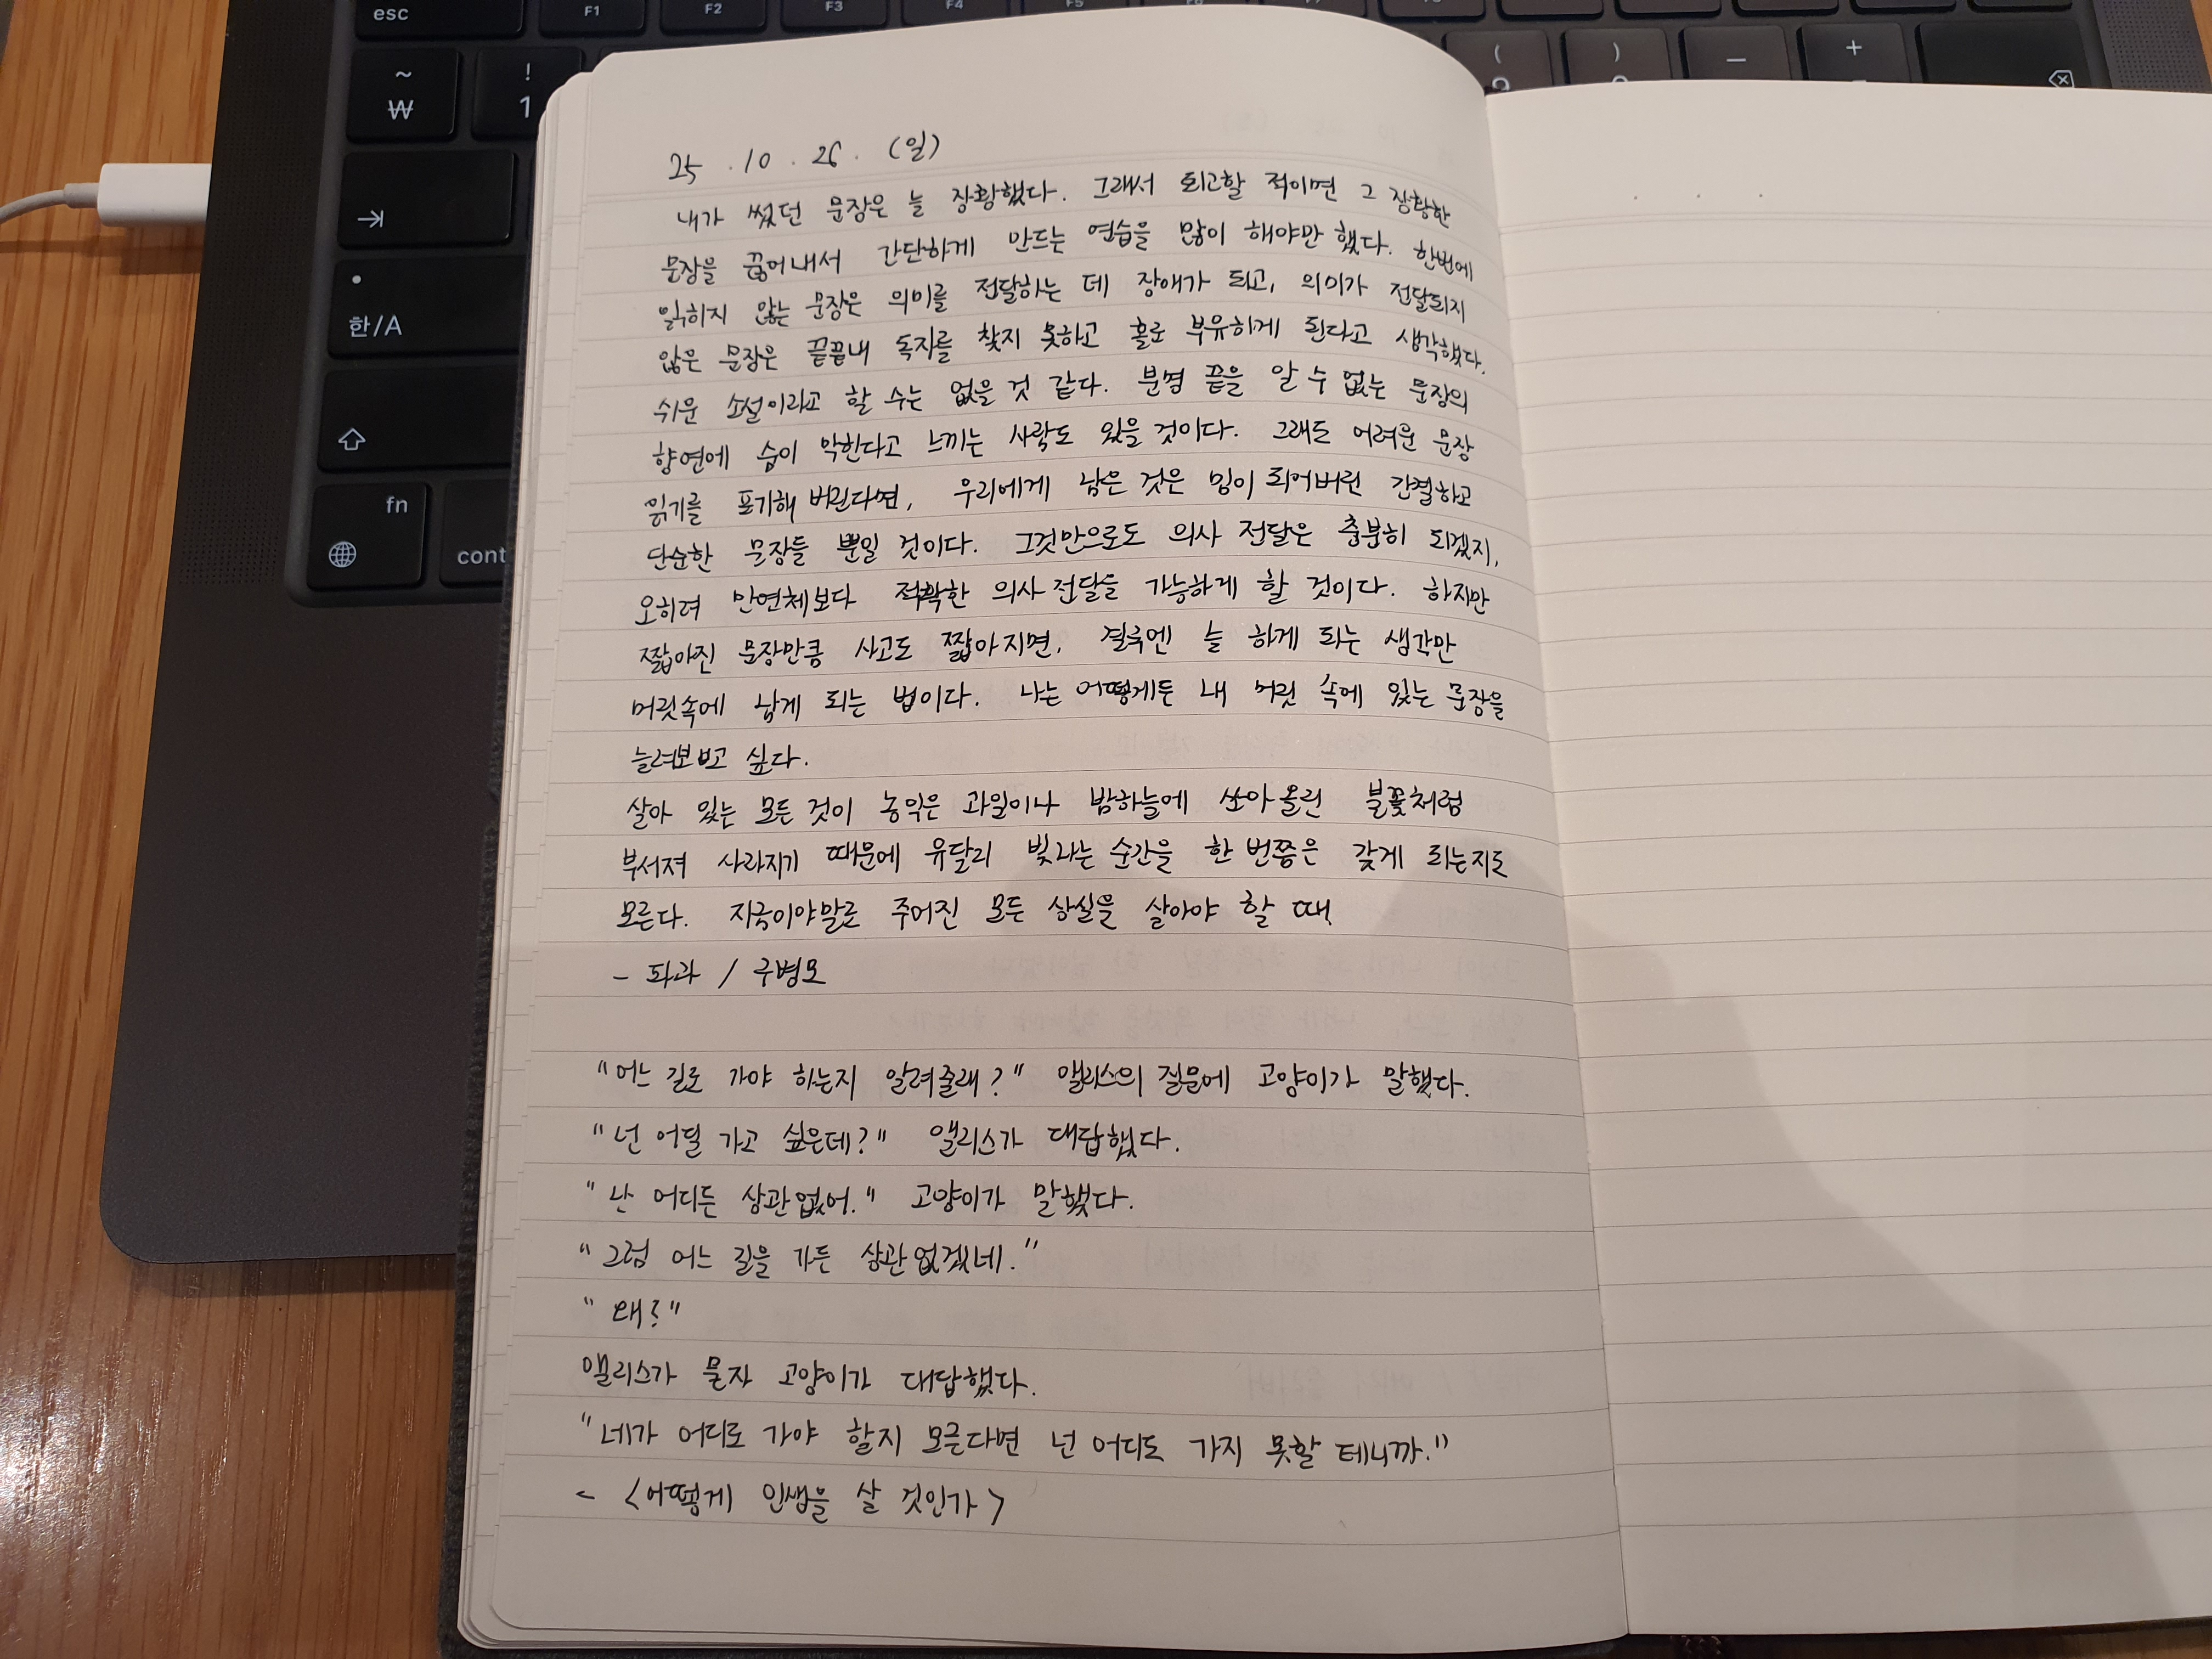 esc
F1
F2
F3
F4
~
₩
!
1
(
)
_
+
한/A
fn
cont
25 . 10 . 26 . (일)
내가 썼던 문장은 늘 장황했다. 그래서 퇴고할 적이면 그 장황한
문장을 끊어내서 간단하게 만드는 연습을 많이 해야만 했다. 한번에
읽히지 않는 문장은 의미를 전달하는 데 장애가 되고, 의미가 전달되지
않은 문장은 끝끝내 독자를 찾지 못하고 홀로 부유하게 된다고 생각했다.
쉬운 소설이라고 할 수는 없을 것 같다. 분명 끝을 알 수 없는 문장의
향연에 숨이 막힌다고 느끼는 사람도 있을 것이다. 그래도 어려운 문장
읽기를 포기해 버린다면, 우리에게 남은 것은 밈이 되어버린 간결하고
단순한 문장들 뿐일 것이다. 그것만으로도 의사 전달은 충분히 되겠지,
오히려 만연체보다 적확한 의사 전달을 가능하게 할 것이다. 하지만
짧아진 문장만큼 사고도 짧아지면, 결국엔 늘 하게 되는 생각만
머릿속에 남게 되는 법이다. 나는 어떻게든 내 머릿 속에 있는 문장을
늘려보고 싶다.
살아 있는 모든 것이 농익은 과일이나 밤하늘에 쏘아올린 불꽃처럼
부서져 사라지기 때문에 유달리 빛나는 순간을 한 번쯤은 갖게 되는지도
모른다. 지금이야말로 주어진 모든 상실을 살아야 할 때
- 파과 / 구병모
"어느 길로 가야 하는지 알려줄래?" 앨리스의 질문에 고양이가 말했다.
"넌 어딜 가고 싶은데?" 앨리스가 대답했다.
"난 어디든 상관없어." 고양이가 말했다.
"그럼 어느 길을 가든 상관없겠네."
"왜?"
앨리스가 묻자 고양이가 대답했다.
"네가 어디로 가야 할지 모른다면 넌 어디도 가지 못할 테니까."
- <어떻게 인생을 살 것인가>